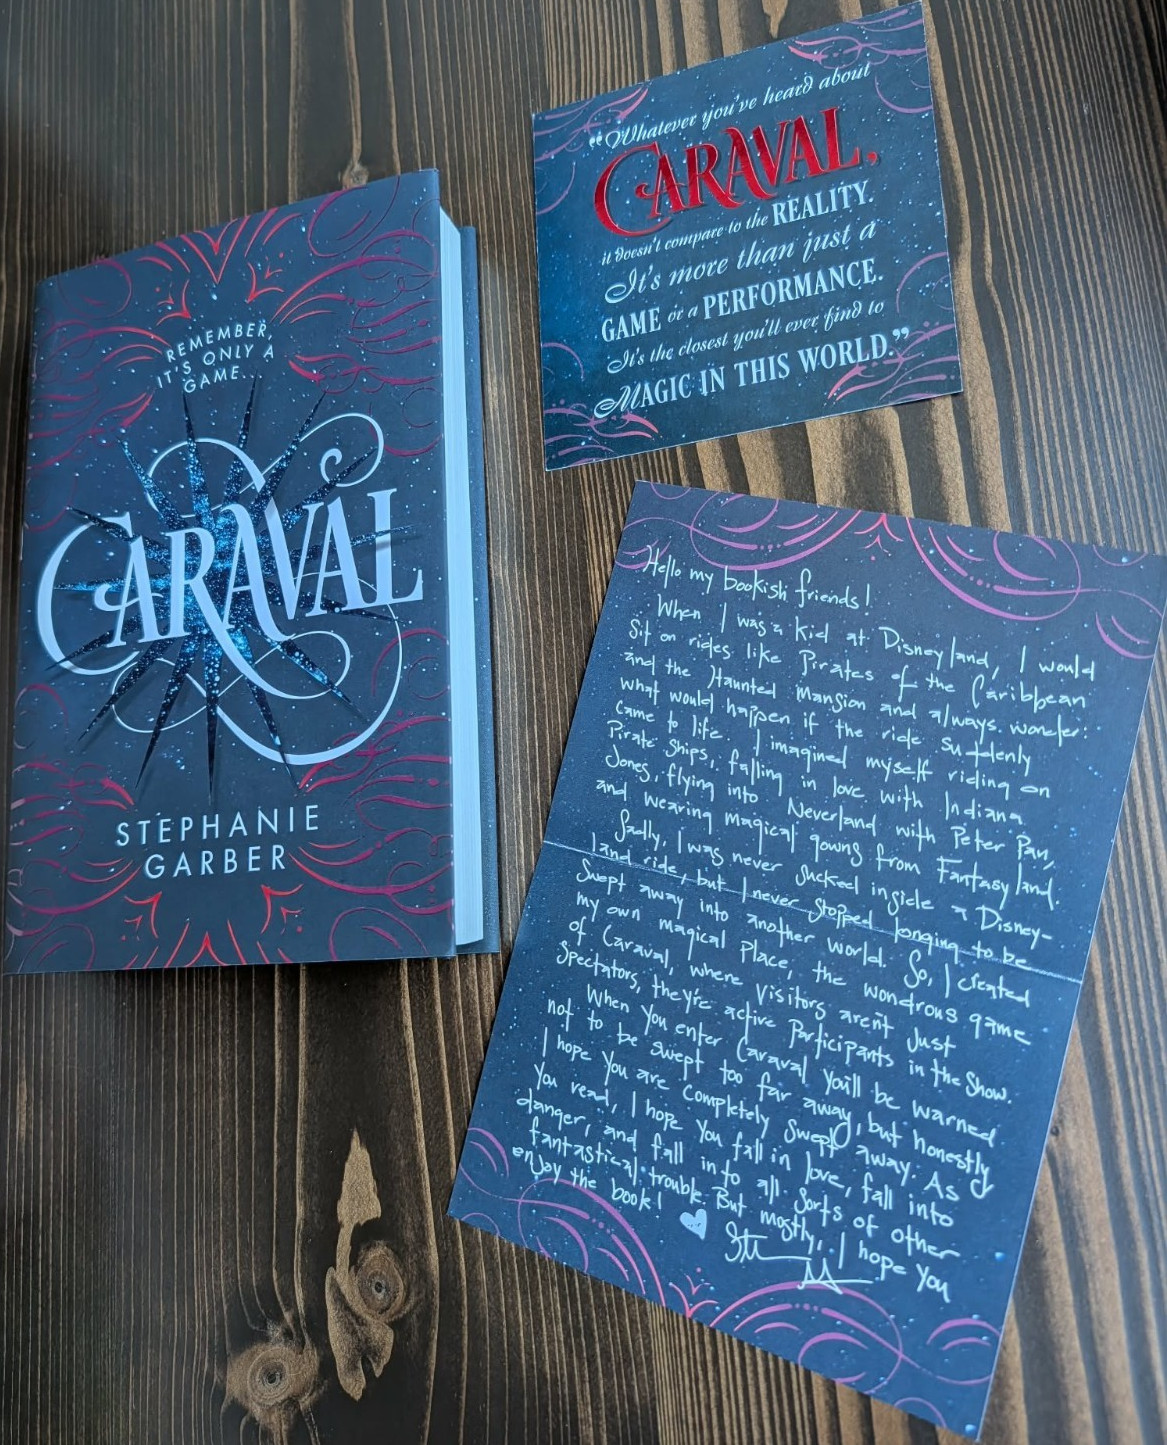 REMEMBER,
IT'S ONLY A
GAME...
CARAVAL
STEPHANIE
GARBER
"Whatever you've heard about
CARAVAL,
it doesn't compare to the REALITY.
It's more than just a
GAME or a PERFORMANCE.
It's the closest you'll ever find to
MAGIC IN THIS WORLD."
Hello my bookish friends!
When I was a kid at Disneyland, I would
sit on rides like Pirates of the Caribbean
and the Haunted Mansion and always wonder:
what would happen if the ride suddenly
came to life. I imagined myself riding on
Pirate ships, falling in love with Indiana
Jones, flying into Neverland with Peter Pan,
and wearing magical gowns from Fantasyland.
Sadly, I was never sucked inside a Disney-
land ride, but I never stopped longing to be
swept away into another world. So, I created
my own magical place, the wondrous game
of Caraval, where visitors aren't just
spectators, they're active participants in the show.
When you enter Caraval you'll be warned
not to be swept too far away, but honestly
I hope you are completely swept away. As
you read, I hope you fall in love, fall into
danger, and fall into all sorts of other
fantastical trouble. But mostly, I hope you
enjoy the book!